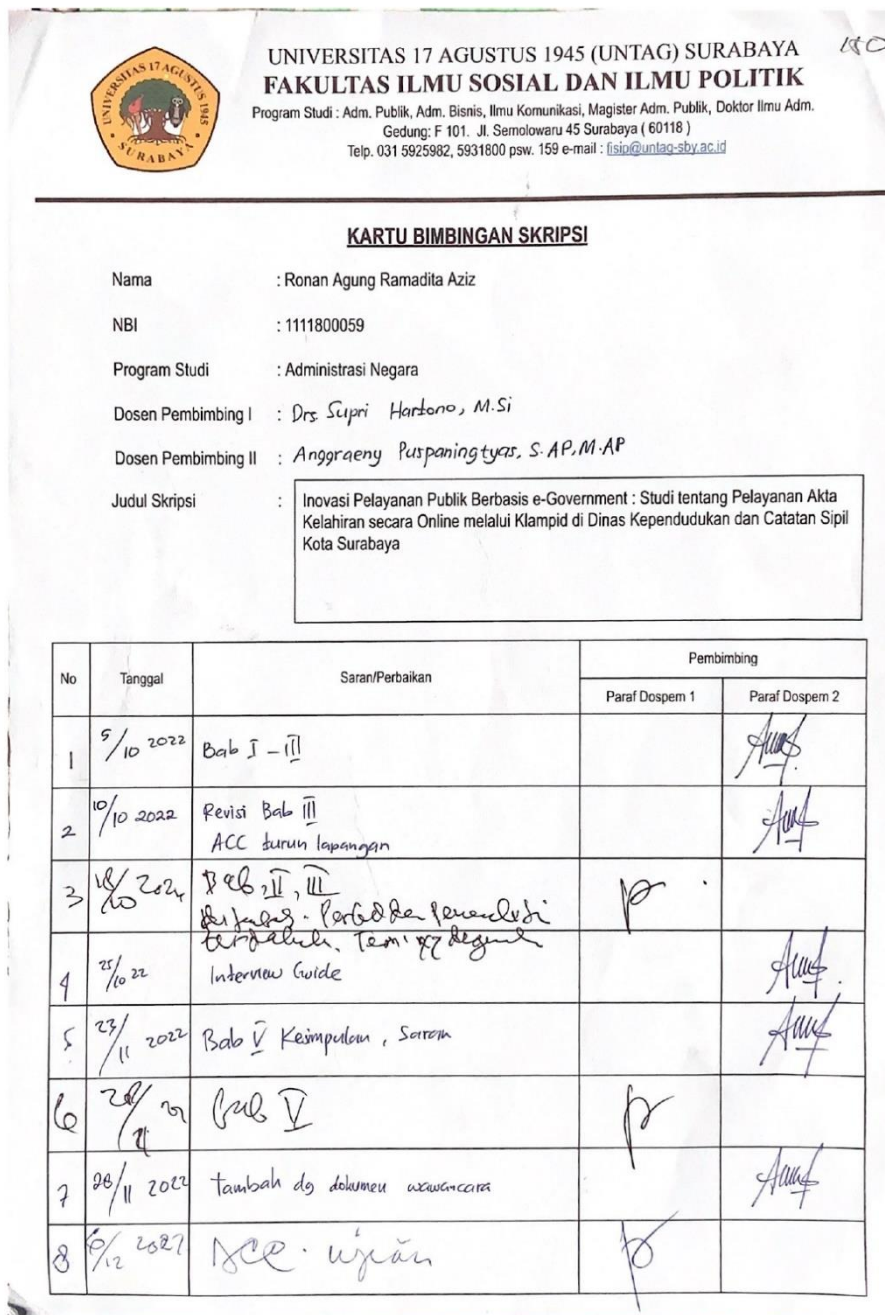 UNIVERSITAS 17 AGUSTUS 1945 (UNTAG) SURABAYA
FAKULTAS ILMU SOSIAL DAN ILMU POLITIK
Program Studi : Adm. Publik, Adm. Bisnis, Ilmu Komunikasi, Magister Adm. Publik, Doktor Ilmu Adm.
Gedung: F 101. Jl. Semolowaru 45 Surabaya ( 60118 )
Telp. 031 5925982, 5931800 psw. 159 e-mail : fisip@untag-sby.ac.id
UNIVERSITAS 17 AGUSTUS 1945
SURABAYA
KARTU BIMBINGAN SKRIPSI
Nama : Ronan Agung Ramadita Aziz
NBI : 1111800059
Program Studi : Administrasi Negara
Dosen Pembimbing I : Drs. Supri Hartono, M.Si
Dosen Pembimbing II : Anggraeny Puspaningtyas, S.AP, M.AP
Judul Skripsi : Inovasi Pelayanan Publik Berbasis e-Government : Studi tentang Pelayanan Akta
Kelahiran secara Online melalui Klampid di Dinas Kependudukan dan Catatan Sipil
Kota Surabaya
No Tanggal Saran/Perbaikan Pembimbing
Paraf Dospem 1 Paraf Dospem 2
1 5/10 2022 Bab I - III
2 10/10 2022 Revisi Bab III
ACC turun lapangan
3 Bab, II, III
4 25/10 22 Interview Guide
5 23/11 2022 Bab V Kesimpulan, Saran
6 Bab V
7 28/11 2022 tambah dg dokumen wawancara
8 6/12 ACC. ujian